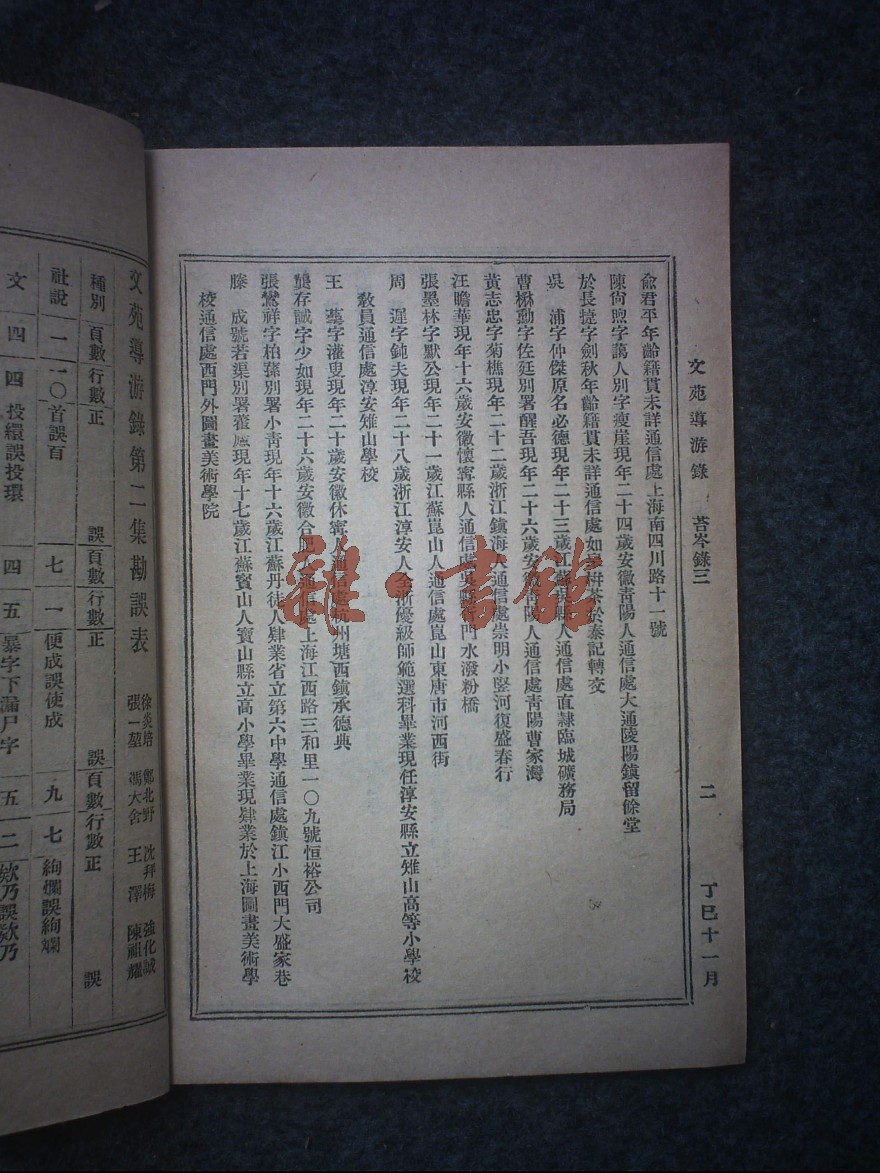 文苑導游錄　苔岑錄三　二　丁巳十一月
俞君平年齡籍貫未詳通信處上海南四川路十一號
陳尙煦字藹人別字瘦崖現年二十四歲安徽靑陽人通信處大通陵陽鎭留餘堂
於長㨗字劍秋年齡籍貫未詳通信處如 栟茶於泰記轉交
吳　浦字仲傑原名必德現年二十三歲江蘇 縣人通信處直隸臨城礦務局
曹楙勳字佐廷別署醒吾現年二十六歲安徽靑陽人通信處靑陽曹家灣
黃志忠字菊樵現年二十二歲浙江鎭海人通信處崇明小竪河復盛春行
汪瞻華現年十六歲安徽懷寧縣人通信處吳縣 門水潑粉橋
張墨林字默公現年二十一歲江蘇崑山人通信處崑山東唐市河西街
周　遲字鈍夫現年二十八歲浙江淳安人全浙優級師範選科畢業現任淳安縣立雉山高等小學校
敎員通信處淳安雉山學校
王　 字藩叟現年二十歲安徽休寧人通信處杭州塘西鎭承德典
龔存誠字少如現年二十六歲安徽合肥人通信處上海江西路三和里一〇九號恒裕公司
張鸞祥字柏葊別署小靑現年十六歲江蘇丹徒人肄業省立第六中學通信處鎭江小西門大盛家巷
滕　成號若渠別署 現年十七歲江蘇寶山人寶山縣立高小學畢業現肄業於上海圖畫美術學
校通信處西門外圖畫美術學院
雜·書館
文苑導游錄第二集勘誤表　徐炎培　鄭北野　沈拜梅　強化誠
張一堃　馮大舍　王　澤　陳祖耀
種別　頁數　行數　正　誤　頁數　行數　正　誤　頁數　行數　正　誤
社說　一　一〇　首誤百　七　一　便成誤使成　九　七　絢爛誤絢斕
文　四　四　投繯誤投環　四　五　暴字下漏尸字　五　二　欸乃誤欵乃